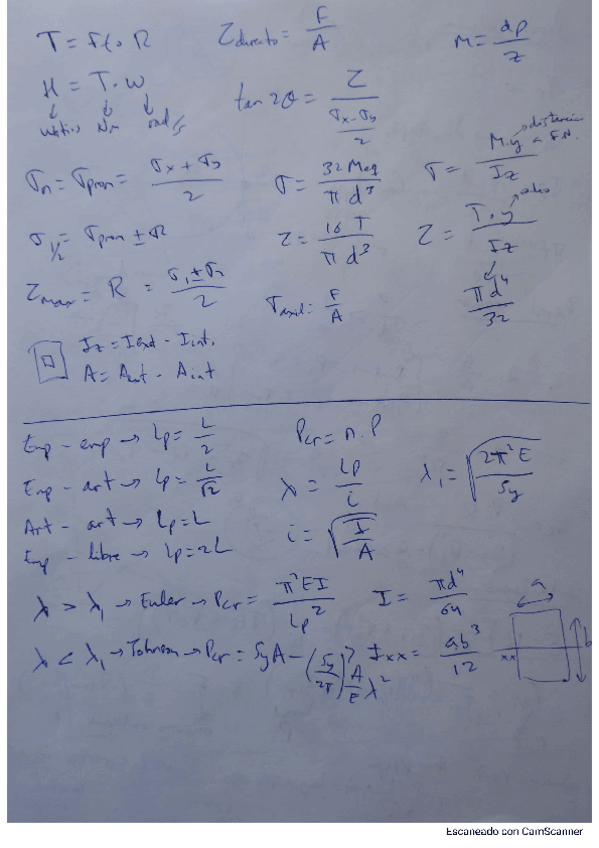 T = Ft · R
τdirecto = F/A
m = dp/z
H = T · w
watios Nm rad/s
tan 2θ = τ / ((σx - σy)/2)
σn = σprom = (σx + σy)/2
σ = 32 Meq / π d³
σ = M·y / Iz
distancia a F.N.
σ1/2 = σprom ± R
τ = 16 T / π d³
τ = T·y / Iz
πd⁴/32
τmax = R = (σ1 ± σ2)/2
σaxil = F/A
Iz = Iext - Iint.
A = Aext - Aint
Emp - emp → Lp = L/2
Pcr = n · P
Emp - art → Lp = L/√2
λ = Lp/i
λ1 = √(2π²E/Sy)
Art - art → Lp = L
i = √(I/A)
Emp - libre → Lp = 2L
λ > λ1 → Euler → Pcr = π²EI / Lp²
I = πd⁴/64
a
λ < λ1 → Johnson → Pcr = SyA - (Sy/2π)² A/E λ²
Ixx = ab³/12
xx
b
Escaneado con CamScanner